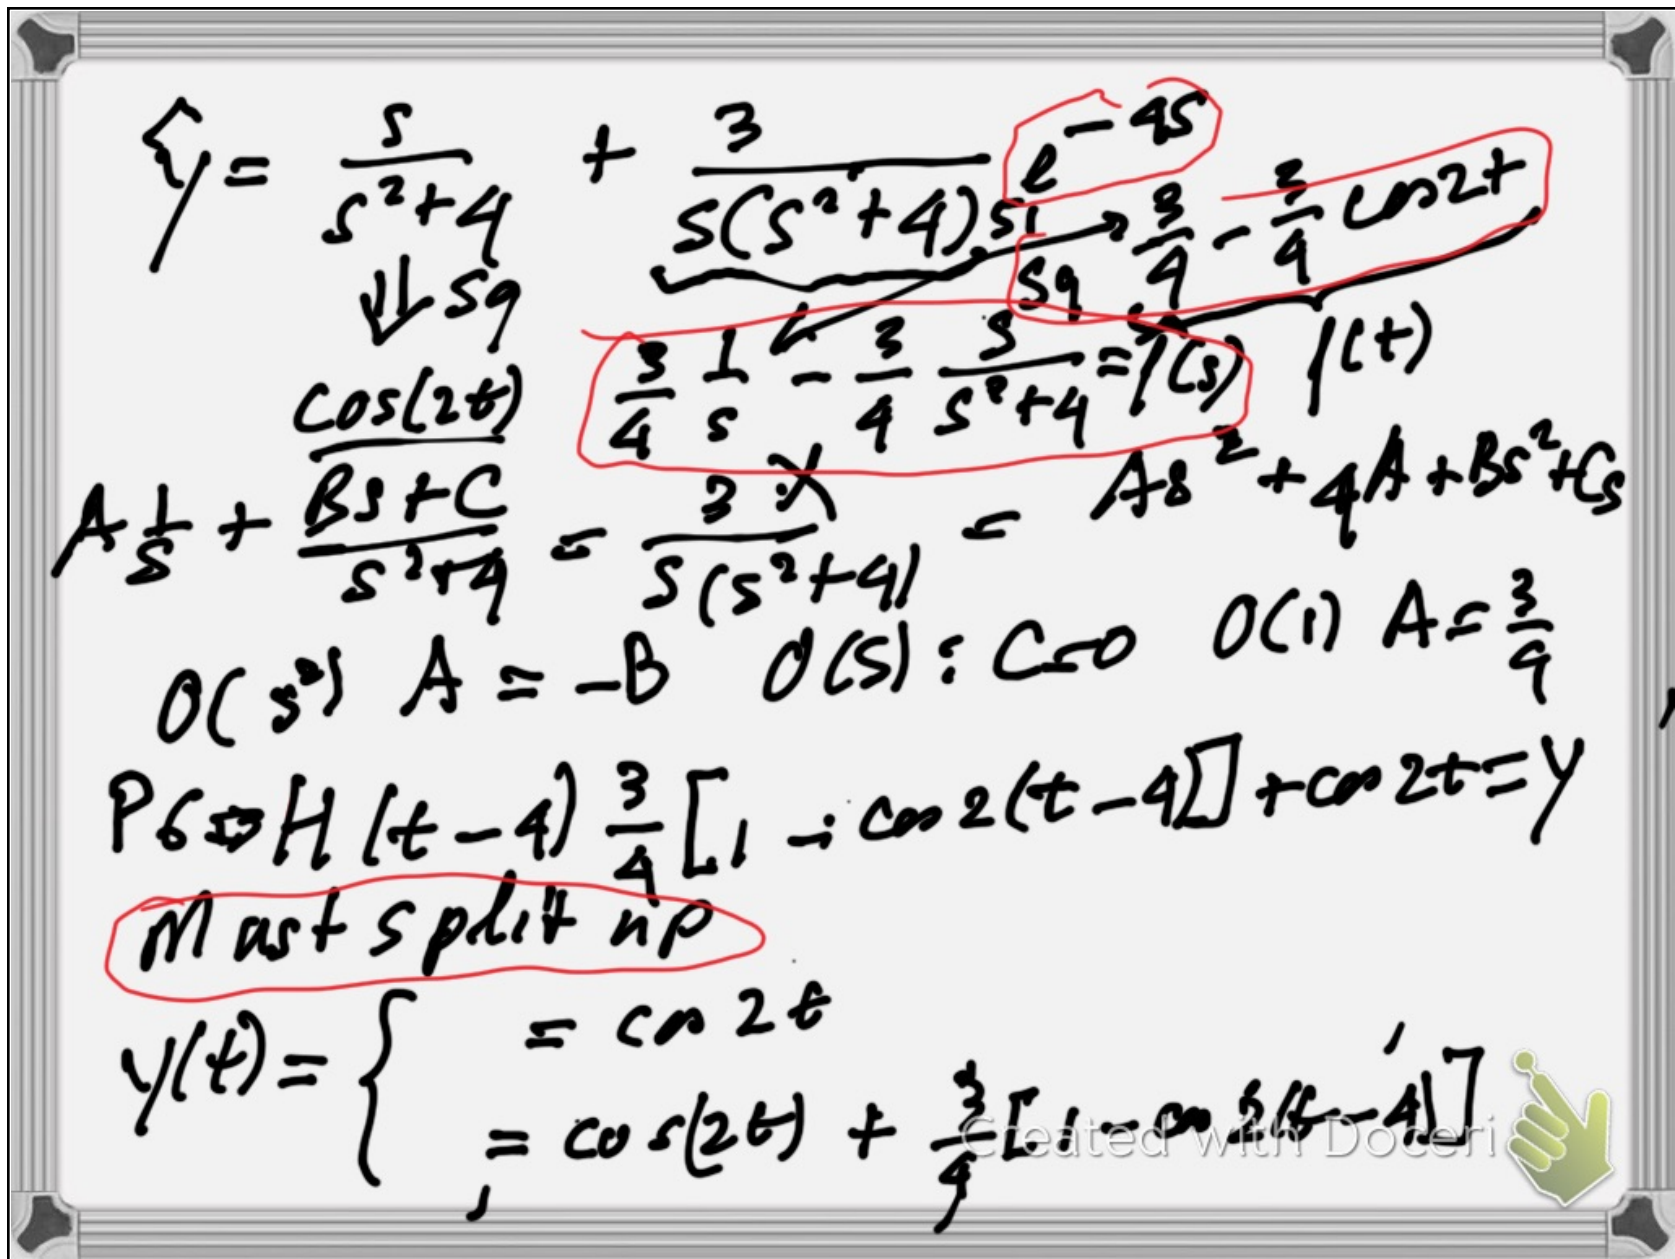 y = s/(s²+4) + 3/(s(s²+4)) e^-4s
⇓ S9 S1 S9 3/4 - 3/4 cos2t
cos(2t) 3/4 1/s - 3/4 s/(s²+4) = f(s) f(t)
A 1/s + (Bs+C)/(s²+4) = 3/(s(s²+4)) = As² + 4A + Bs² + Cs
O(s²) A = -B O(s): C=0 O(1) A = 3/4
P6 ⇒ H(t-4) 3/4 [1 - cos 2(t-4)] + cos 2t = y
Must split up
y(t) = { = cos 2t
= cos(2t) + 3/4 [1 - cos 2(t-4)]
Created with Doceri